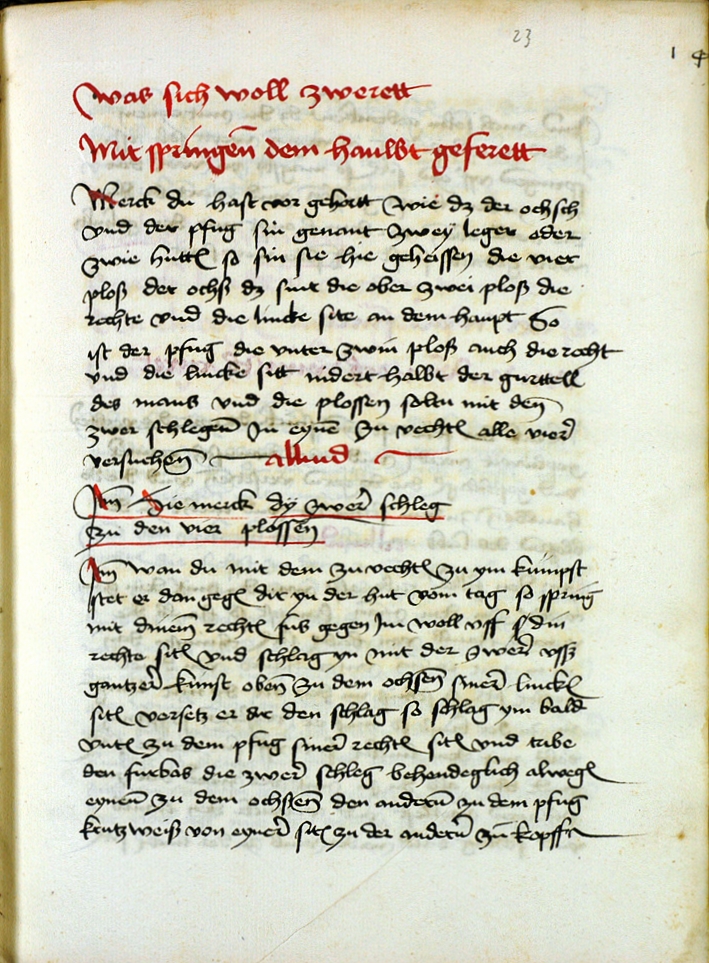 23
1 4
was sich woll zwerett
Mit springen̄ dem haubt geferett
Merck du hast vor gehortt wie dz der ochsch
vnd der pfug sin genant zwey leger oder
zwie hutt so sin sie hie geheissen die vier
ploß der ochß dz sint die ober zwei ploß die
rechte vnd die lincke site an dem haupt So
ist der pfug die vnter zwin ploß auch die recht
vnd die lincke sitt niderthalbt der gurttell
des mans vnd die plossen soltu mit den̄
zwer schlegen̄ In eyne zu vecht alle vier
versuchen̄ allind
Itm̄ Hie merck dy zwer schleg
zu den vier plossen
Itm̄ wan du mit dem zu vecht zu ym kumpst
stet er dan geg dir yn der hut vom tag so spring
mit dinem recht fus gegen Im woll vff din
rechte sit vnd schlag yn mit der zwer vsß
gantzer kunst oben̄ zu dem ochsen̄ siner linck
sit versetz er dir den schlag so schlag ym bald
vnt zu dem pfug siner recht sit vnd tribe
den furbas die zwer schleg behendeglich alweg
eynen̄ zu dem ochssen̄ den andern̄ zu dem pfug
krutzweiß von eyner sit zu der andern̄ zū kopff